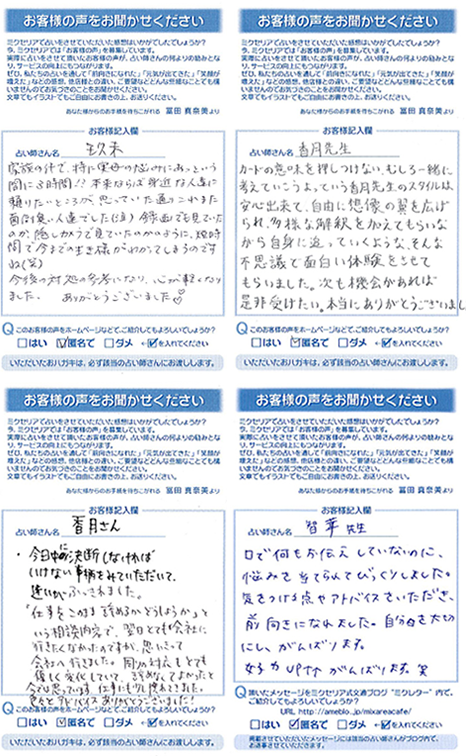 お客様の声をお聞かせください
ミクセリアで占いをさせていただいた感想はいかがでしたでしょうか?
今、ミクセリアでは「お客様の声」を募集しています。
実際に占いをさせて頂いたお客様の声が、占い師さんの何よりの励みとなり、サービスの向上にもつながります。
ぜひ、私たちの占いを通して「前向きになれた」「元気が出てきた」「笑顔が増えた」などの感想や、他店様との違い、ご要望などどんな些細なことでも構いませんのでお気づきのことをお聞かせください。
文章でもイラストでもご自由にお書きの上、お送りください。
あなた様からのお手紙を待ちこがれる 冨田 真奈美より
お客様記入欄
占い師さん名 玖未
家族の件で、特に実母の悩みにあっという
間に3時間!! 本来ならば身近な人達に
頼りたいところが、思っていた通りこれまた
面倒くさい人達でした(泣) 録画でも見ていた
のか、隠しカメラで見ていたのかのように、短時
間で今までの生き様がわかってしまうのです
ね(笑)
今後の対処の参考になり、心が軽くなり
ました。 ありがとうございました♡
Q このお客様の声をホームページなどで、ご紹介してもよろしいでしょうか?
□はい ☑匿名で □ダメ ←☑を入れてください
いただいたおハガキは、必ず該当の占い師さんにお渡しします。
お客様の声をお聞かせください
ミクセリアで占いをさせていただいた感想はいかがでしたでしょうか?
今、ミクセリアでは「お客様の声」を募集しています。
実際に占いをさせて頂いたお客様の声が、占い師さんの何よりの励みとなり、サービスの向上にもつながります。
ぜひ、私たちの占いを通して「前向きになれた」「元気が出てきた」「笑顔が増えた」などの感想や、他店様との違い、ご要望などどんな些細なことでも構いませんのでお気づきのことをお聞かせください。
文章でもイラストでもご自由にお書きの上、お送りください。
あなた様からのお手紙を待ちこがれる 冨田 真奈美より
お客様記入欄
占い師さん名 香月先生
カードの意味を押しつけない、むしろ一緒に
考えていこうよっていう香月先生のスタイルは
安心出来て、自由に想像の翼を広げ
られ、多様な解釈を加えてもらいな
がら自身に迫っていくような、そんな
不思議で面白い体験をさせて
もらいました。次も機会があれば
是非受けたい。本当にありがとうございまし
Q このお客様の声をホームページなどで、ご紹介してもよろしいでしょうか?
□はい ☑匿名で □ダメ ←☑を入れてください
いただいたおハガキは、必ず該当の占い師さんにお渡しします。
お客様の声をお聞かせください
ミクセリアで占いをさせていただいた感想はいかがでしたでしょうか?
今、ミクセリアでは「お客様の声」を募集しています。
実際に占いをさせて頂いたお客様の声が、占い師さんの何よりの励みとなり、サービスの向上にもつながります。
ぜひ、私たちの占いを通して「前向きになれた」「元気が出てきた」「笑顔が増えた」などの感想や、他店様との違い、ご要望などどんな些細なことでも構いませんのでお気づきのことをお聞かせください。
文章でもイラストでもご自由にお書きの上、お送りください。
あなた様からのお手紙を待ちこがれる 冨田 真奈美より
お客様記入欄
占い師さん名 香月さん
・今日中に決断しなければ
いけない事柄をみていただいて、
迷いがふっきれました。
「仕事をこのまま辞めるかどうしようか」と
いう相談内容で、翌日とても会社に
行きたくなかったのですが、思いきって
会社へ行きました。周りの対応もとても
優しく変化していて、辞めなくてよかったと
今では思っています。仕事にも少し慣れてきました。
アドバイスありがとうございました!
Q このお客様の声をホームページなどで、ご紹介してもよろしいでしょうか?
□はい ☑匿名で □ダメ ←☑を入れてください
いただいたおハガキは、必ず該当の占い師さんにお渡しします。
お客様の声をお聞かせください
ミクセリアで占いをさせていただいた感想はいかがでしたでしょうか?
今、ミクセリアでは「お客様の声」を募集しています。
実際に占いをさせて頂いたお客様の声が、占い師さんの何よりの励みとなり、サービスの向上にもつながります。
ぜひ、私たちの占いを通して「前向きになれた」「元気が出てきた」「笑顔が増えた」などの感想や、他店様との違い、ご要望などどんな些細なことでも構いませんのでお気づきのことをお聞かせください。
文章でもイラストでもご自由にお書きの上、お送りください。
あなた様からのお手紙を待ちこがれる 冨田 真奈美より
お客様記入欄
占い師さん名 智華先生
口で何もお伝えしていないのに、
悩みを当てられてびっくりしました。
気をつける点やアドバイスをいただき、
前向きになれました。自分を大切
にし、がんばります。
女子力UP↑↑がんばります。笑
Q 頂いたメッセージをミクセリア公式ブログ"ミクレター"内で、ご紹介してもよろしいでしょうか?
URL http://ameblo.jp/mixareacafe/
□はい ☑匿名で □ダメ ←☑を入れてください
掲載させていただいたメッセージには該当の占い師さんがブログ内で、お返事させていただきます。